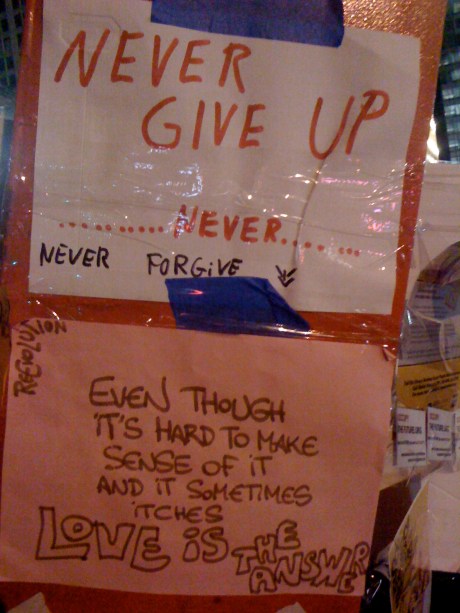 NEVER
GIVE UP
.......... NEVER.........
NEVER FORGiVE
REVOLUTION
EVEN THOUGH
IT'S HARD TO MAKE
SENSE OF iT
AND iT SOMETIMES
iTCHES
LOVE iS THE
ANSWER